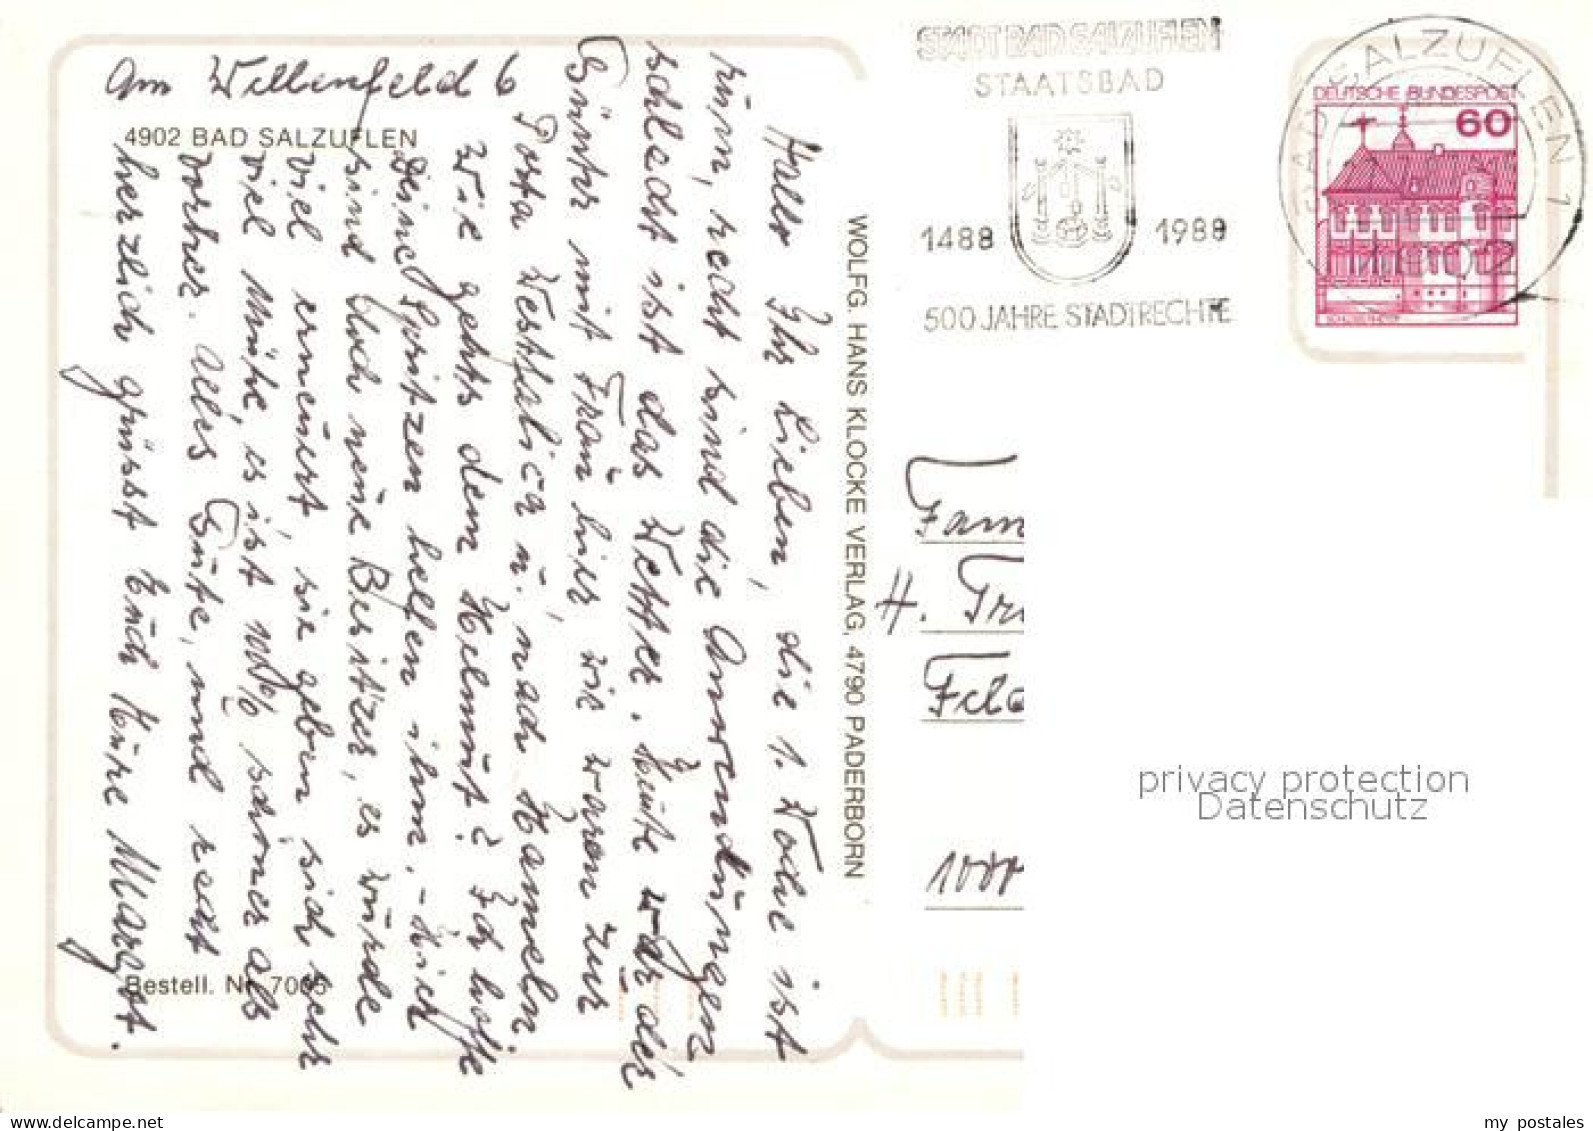 Am Wellenfeld 6
4902 BAD SALZUFLEN
Hallo Ihr Lieben, die 1. Woche ist
rum, recht sind die Anwendungen
schlecht ist das Wetter. Heute war der
Günter mit Frau hier, wie waren zur
Porta Westfalica u. nach Hameln.
Wie gehts dem Helmut? Ich hoffe
Deine Spritzen helfen ihm. - Hier
sind doch neue Besitzer, es wurde
viel erneuert, sie geben sich sehr
viel Mühe, es ist 100% schöner als
vorher. Alles Gute, und recht
herzlich grüsst Euch Eure Margot.
Bestell. Nr. 7005
WOLFG. HANS KLOCKE VERLAG, 4790 PADERBORN
STADT BAD SALZUFLEN
STAATSBAD
1488 1988
500 JAHRE STADTRECHTE
BAD SALZUFLEN 1
4902
DEUTSCHE BUNDESPOST
60
Fam
H.
privacy protection
Datenschutz
my postales